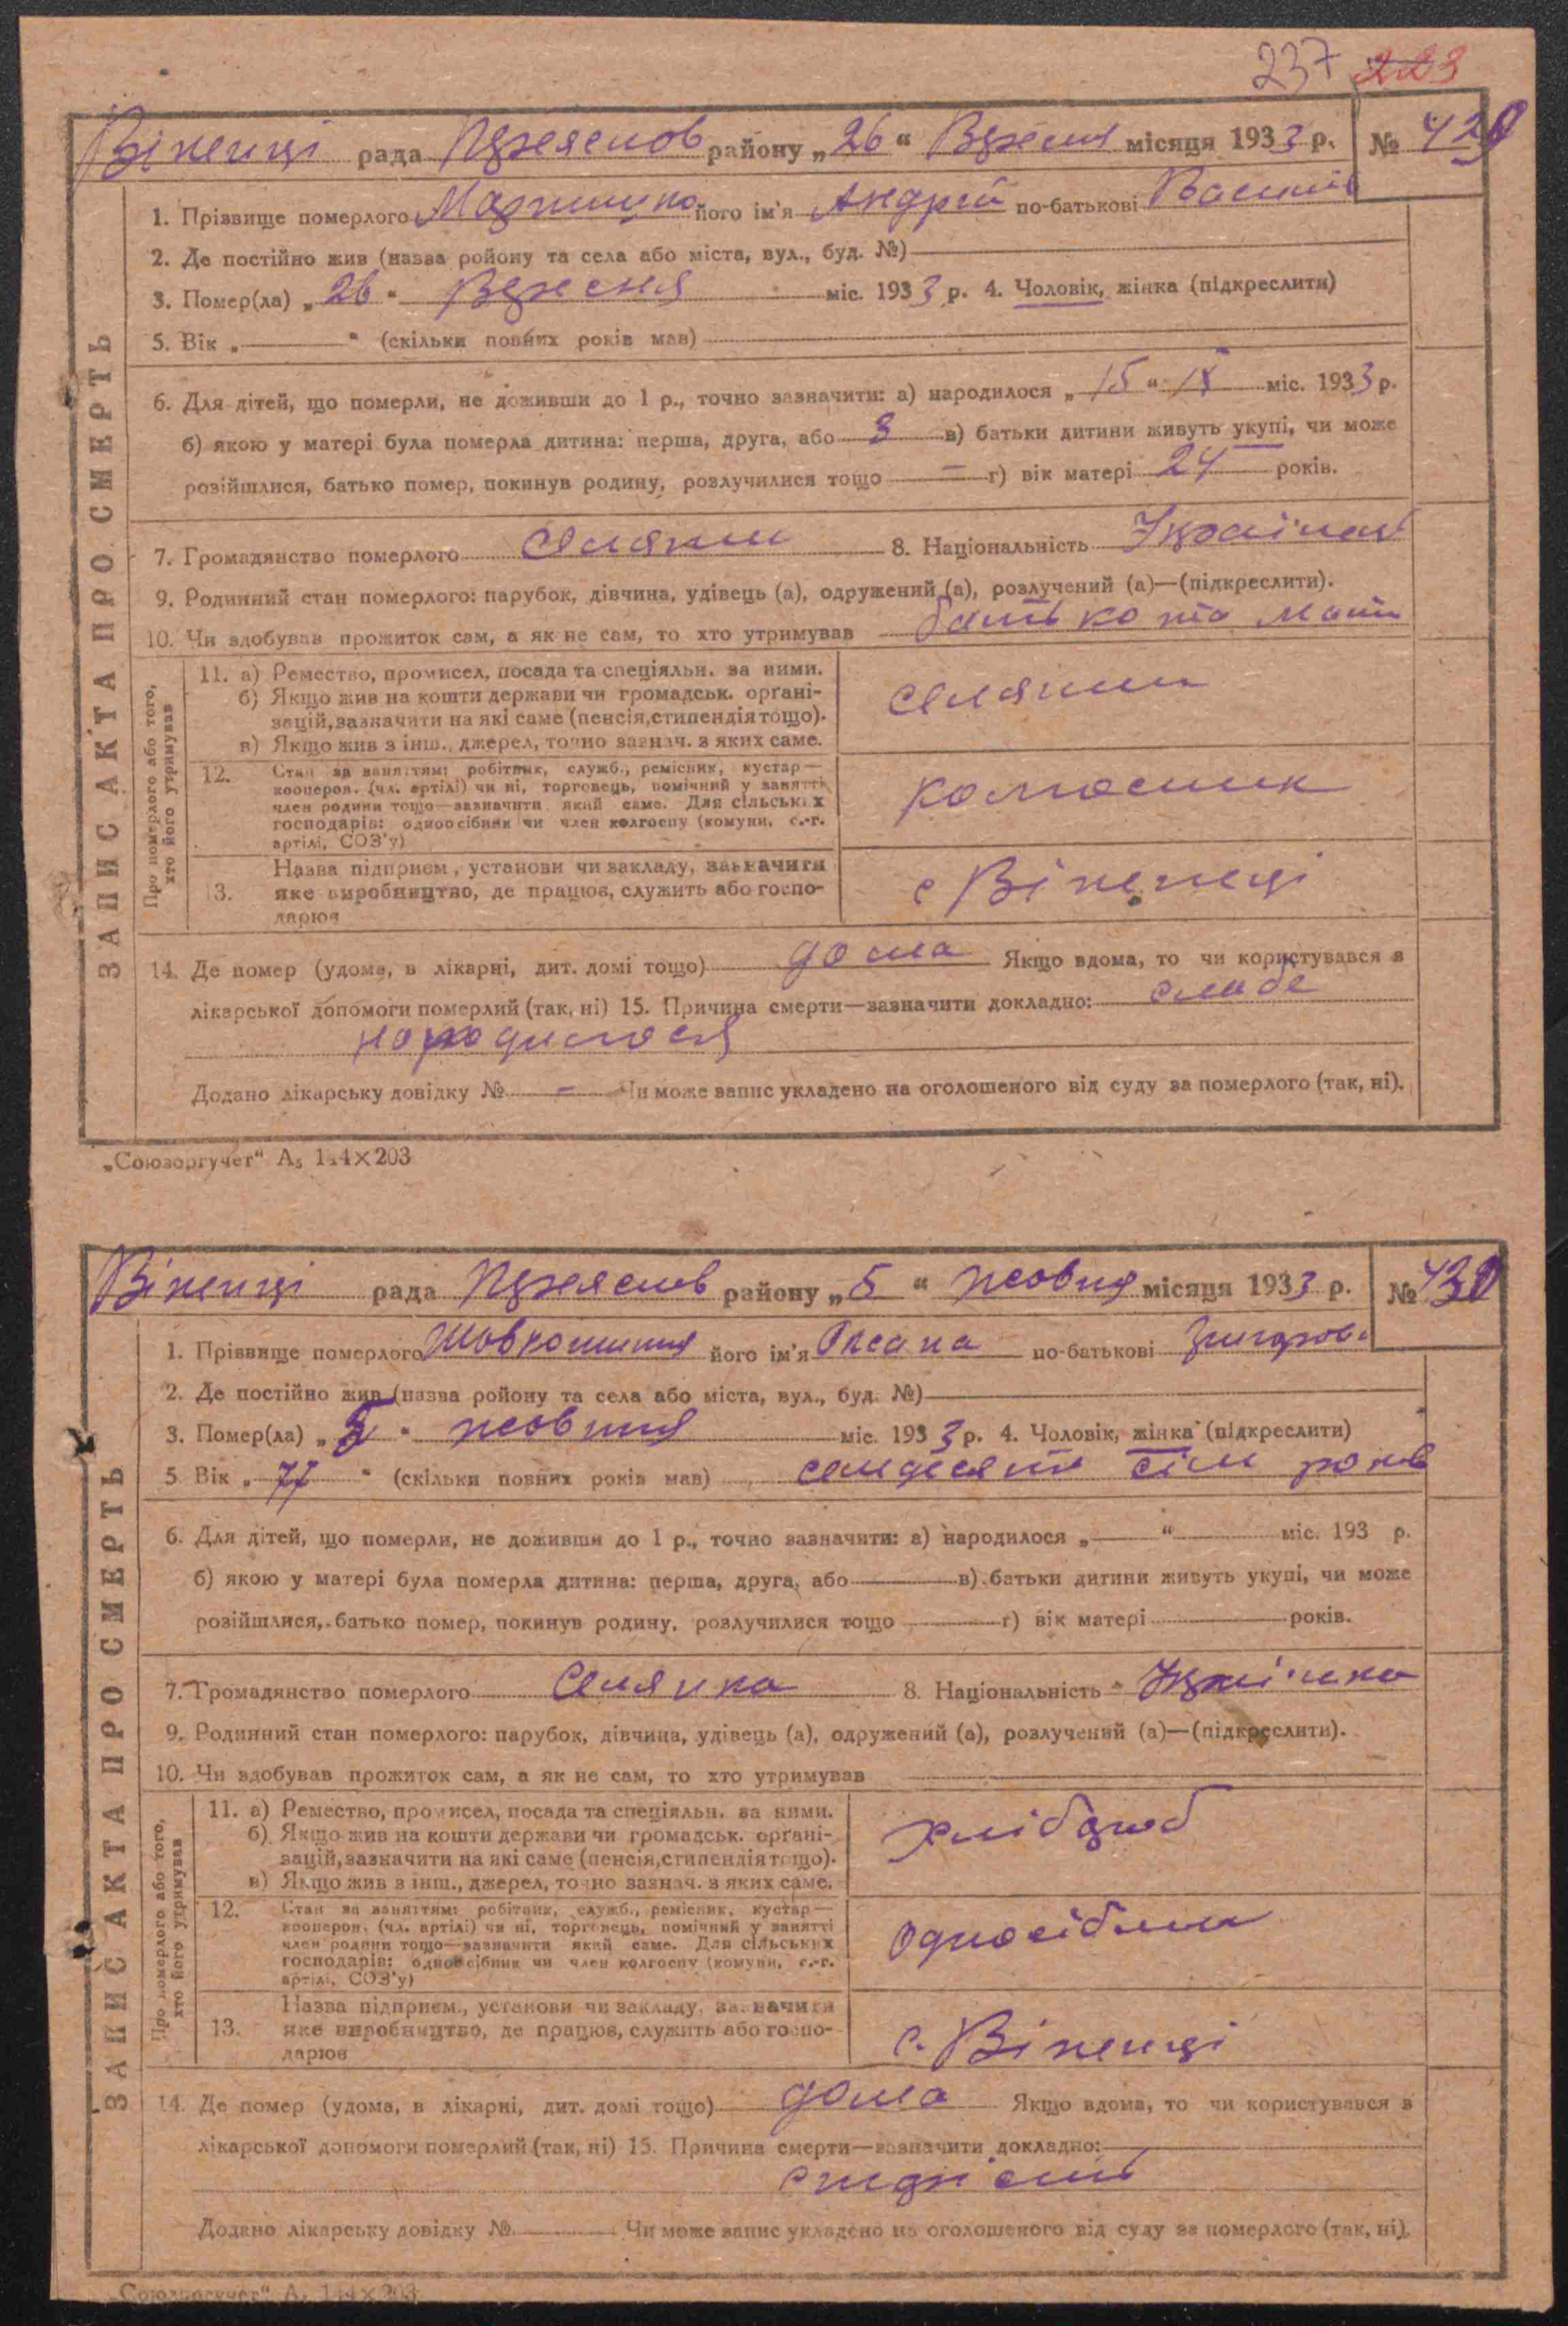 237 223
Віненці рада Переяслов району „26“ Вересня місяця 1933 р. № 429
ЗАПИС АКТА ПРО СМЕРТЬ
1. Прізвище померлого його ім'я Андрій по-батькові Васил
2. Де постійно жив (назва ройону та села або міста, вул., буд. №)
3. Помер(ла) „26“ Вересня міс. 1933 р. 4. Чоловік, жінка (підкреслити)
5. Вік „ “ (скільки повних років мав)
6. Для дітей, що померли, не доживши до 1 р., точно зазначити: а) народилося „15“ IX міс. 1933 р.
б) якою у матері була померла дитина: перша, друга, або 3 в) батьки дитини живуть укупі, чи може
розійшлися, батько помер, покинув родину, розлучилися тощо — г) вік матері 24 років.
7. Громадянство померлого Селянин 8. Національність Українец
9. Родинний стан померлого: парубок, дівчина, удівець (а), одружений (а), розлучений (а)—(підкреслити).
10. Чи здобував прожиток сам, а як не сам, то хто утримував батько та мати
Про померлого або того, хто його утримував
11. а) Ремество, промисел, посада та спеціяльн. за ними.
б) Якщо жив на кошти держави чи громадськ. орґані-
зацій, зазначити на які саме (пенсія, стипендія тощо).
в) Якщо жив з інш., джерел, точно зазнач. з яких саме.
селянин
12. Стан за заняттям: робітник, служб., ремісник, кустар—
кооперов. (чл. артілі) чи ні, торговець, помічний у занятті
член родини тощо—зазначити який саме. Для сільських
господарів: одноосібник чи член колгоспу (комуни, с.-г.
артілі, СОЗ'у)
колгосник
13. Назва підприєм., установи чи закладу, зазначити
яке виробництво, де працюв, служить або госпо-
дарюв
с Віненці
14. Де помер (удома, в лікарні, дит. домі тощо) дома Якщо вдома, то чи користувався з
лікарської допомоги померлий (так, ні) 15. Причина смерти—зазначити докладно: слабе
народилося
Додано лікарську довідку № — Чи може запис укладено на оголошеного від суду за померлого (так, ні).
„Союзоргучет“ А5 144×203
Віненці рада Переяслов району „5“ жовтня місяця 1933 р. № 430
ЗАПИС АКТА ПРО СМЕРТЬ
1. Прізвище померлого його ім'я Оксана по-батькові Григоров.
2. Де постійно жив (назва ройону та села або міста, вул., буд. №)
3. Помер(ла) „5“ жовтня міс. 1933 р. 4. Чоловік, жінка (підкреслити)
5 Вік „77“ (скільки повних років мав) семдесят сім років
6. Для дітей, що померли, не доживши до 1 р., точно зазначити: а) народилося „ “ міс. 193 р.
б) якою у матері була померла дитина: перша, друга, або в) батьки дитини живуть укупі, чи може
розійшлися, батько помер, покинув родину, розлучилися тощо г) вік матері років.
7. Громадянство померлого Селянка 8. Національність Українка
9. Родинний стан померлого: парубок, дівчина, удівець (а), одружений (а), розлучений (а)—(підкреслити).
10. Чи здобував прожиток сам, а як не сам, то хто утримував
Про померлого або того, хто його утримував
11. а) Ремество, промисел, посада та спеціяльн. за ними.
б) Якщо жив на кошти держави чи громадськ. орґані-
зацій, зазначити на які саме (пенсія, стипендія тощо).
в) Якщо жив з інш., джерел, точно зазнач. з яких саме.
хлібороб
12. Стан за заняттям: робітник, служб., ремісник, кустар—
кооперов. (чл. артілі) чи ні, торговець, помічний у занятті
член родини тощо—зазначити який саме. Для сільських
господарів: одноосібник чи член колгоспу (комуни, с.-г.
артілі, СОЗ'у)
односібник
13. Назва підприєм., установи чи закладу, зазначити
яке виробництво, де працюв, служить або госпо-
дарюв
с. Віненці
14. Де помер (удома, в лікарні, дит. домі тощо) дома Якщо вдома, то чи користувався з
лікарської допомоги померлий (так, ні) 15. Причина смерти—зазначити докладно:
Додано лікарську довідку № Чи може запис укладено на оголошеного від суду за померлого (так, ні).
„Союзоргучет“ А5 144×203